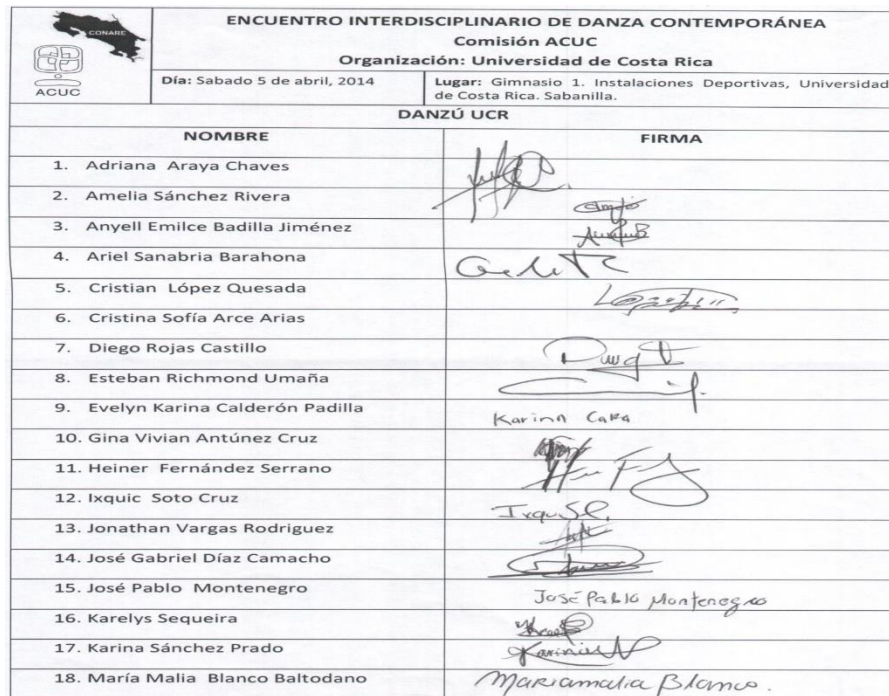 CONARE
ACUC
ENCUENTRO INTERDISCIPLINARIO DE DANZA CONTEMPORÁNEA
Comisión ACUC
Organización: Universidad de Costa Rica
Día: Sabado 5 de abril, 2014
Lugar: Gimnasio 1. Instalaciones Deportivas, Universidad
de Costa Rica. Sabanilla.
DANZÚ UCR
NOMBRE FIRMA
1. Adriana Araya Chaves
2. Amelia Sánchez Rivera
3. Anyell Emilce Badilla Jiménez
4. Ariel Sanabria Barahona
5. Cristian López Quesada
6. Cristina Sofía Arce Arias
7. Diego Rojas Castillo
8. Esteban Richmond Umaña
9. Evelyn Karina Calderón Padilla Karina
10. Gina Vivian Antúnez Cruz
11. Heiner Fernández Serrano
12. Ixquic Soto Cruz
13. Jonathan Vargas Rodriguez
14. José Gabriel Díaz Camacho
15. José Pablo Montenegro José Pablo Montenegro
16. Karelys Sequeira
17. Karina Sánchez Prado
18. María Malia Blanco Baltodano Mariamalia Blanco.